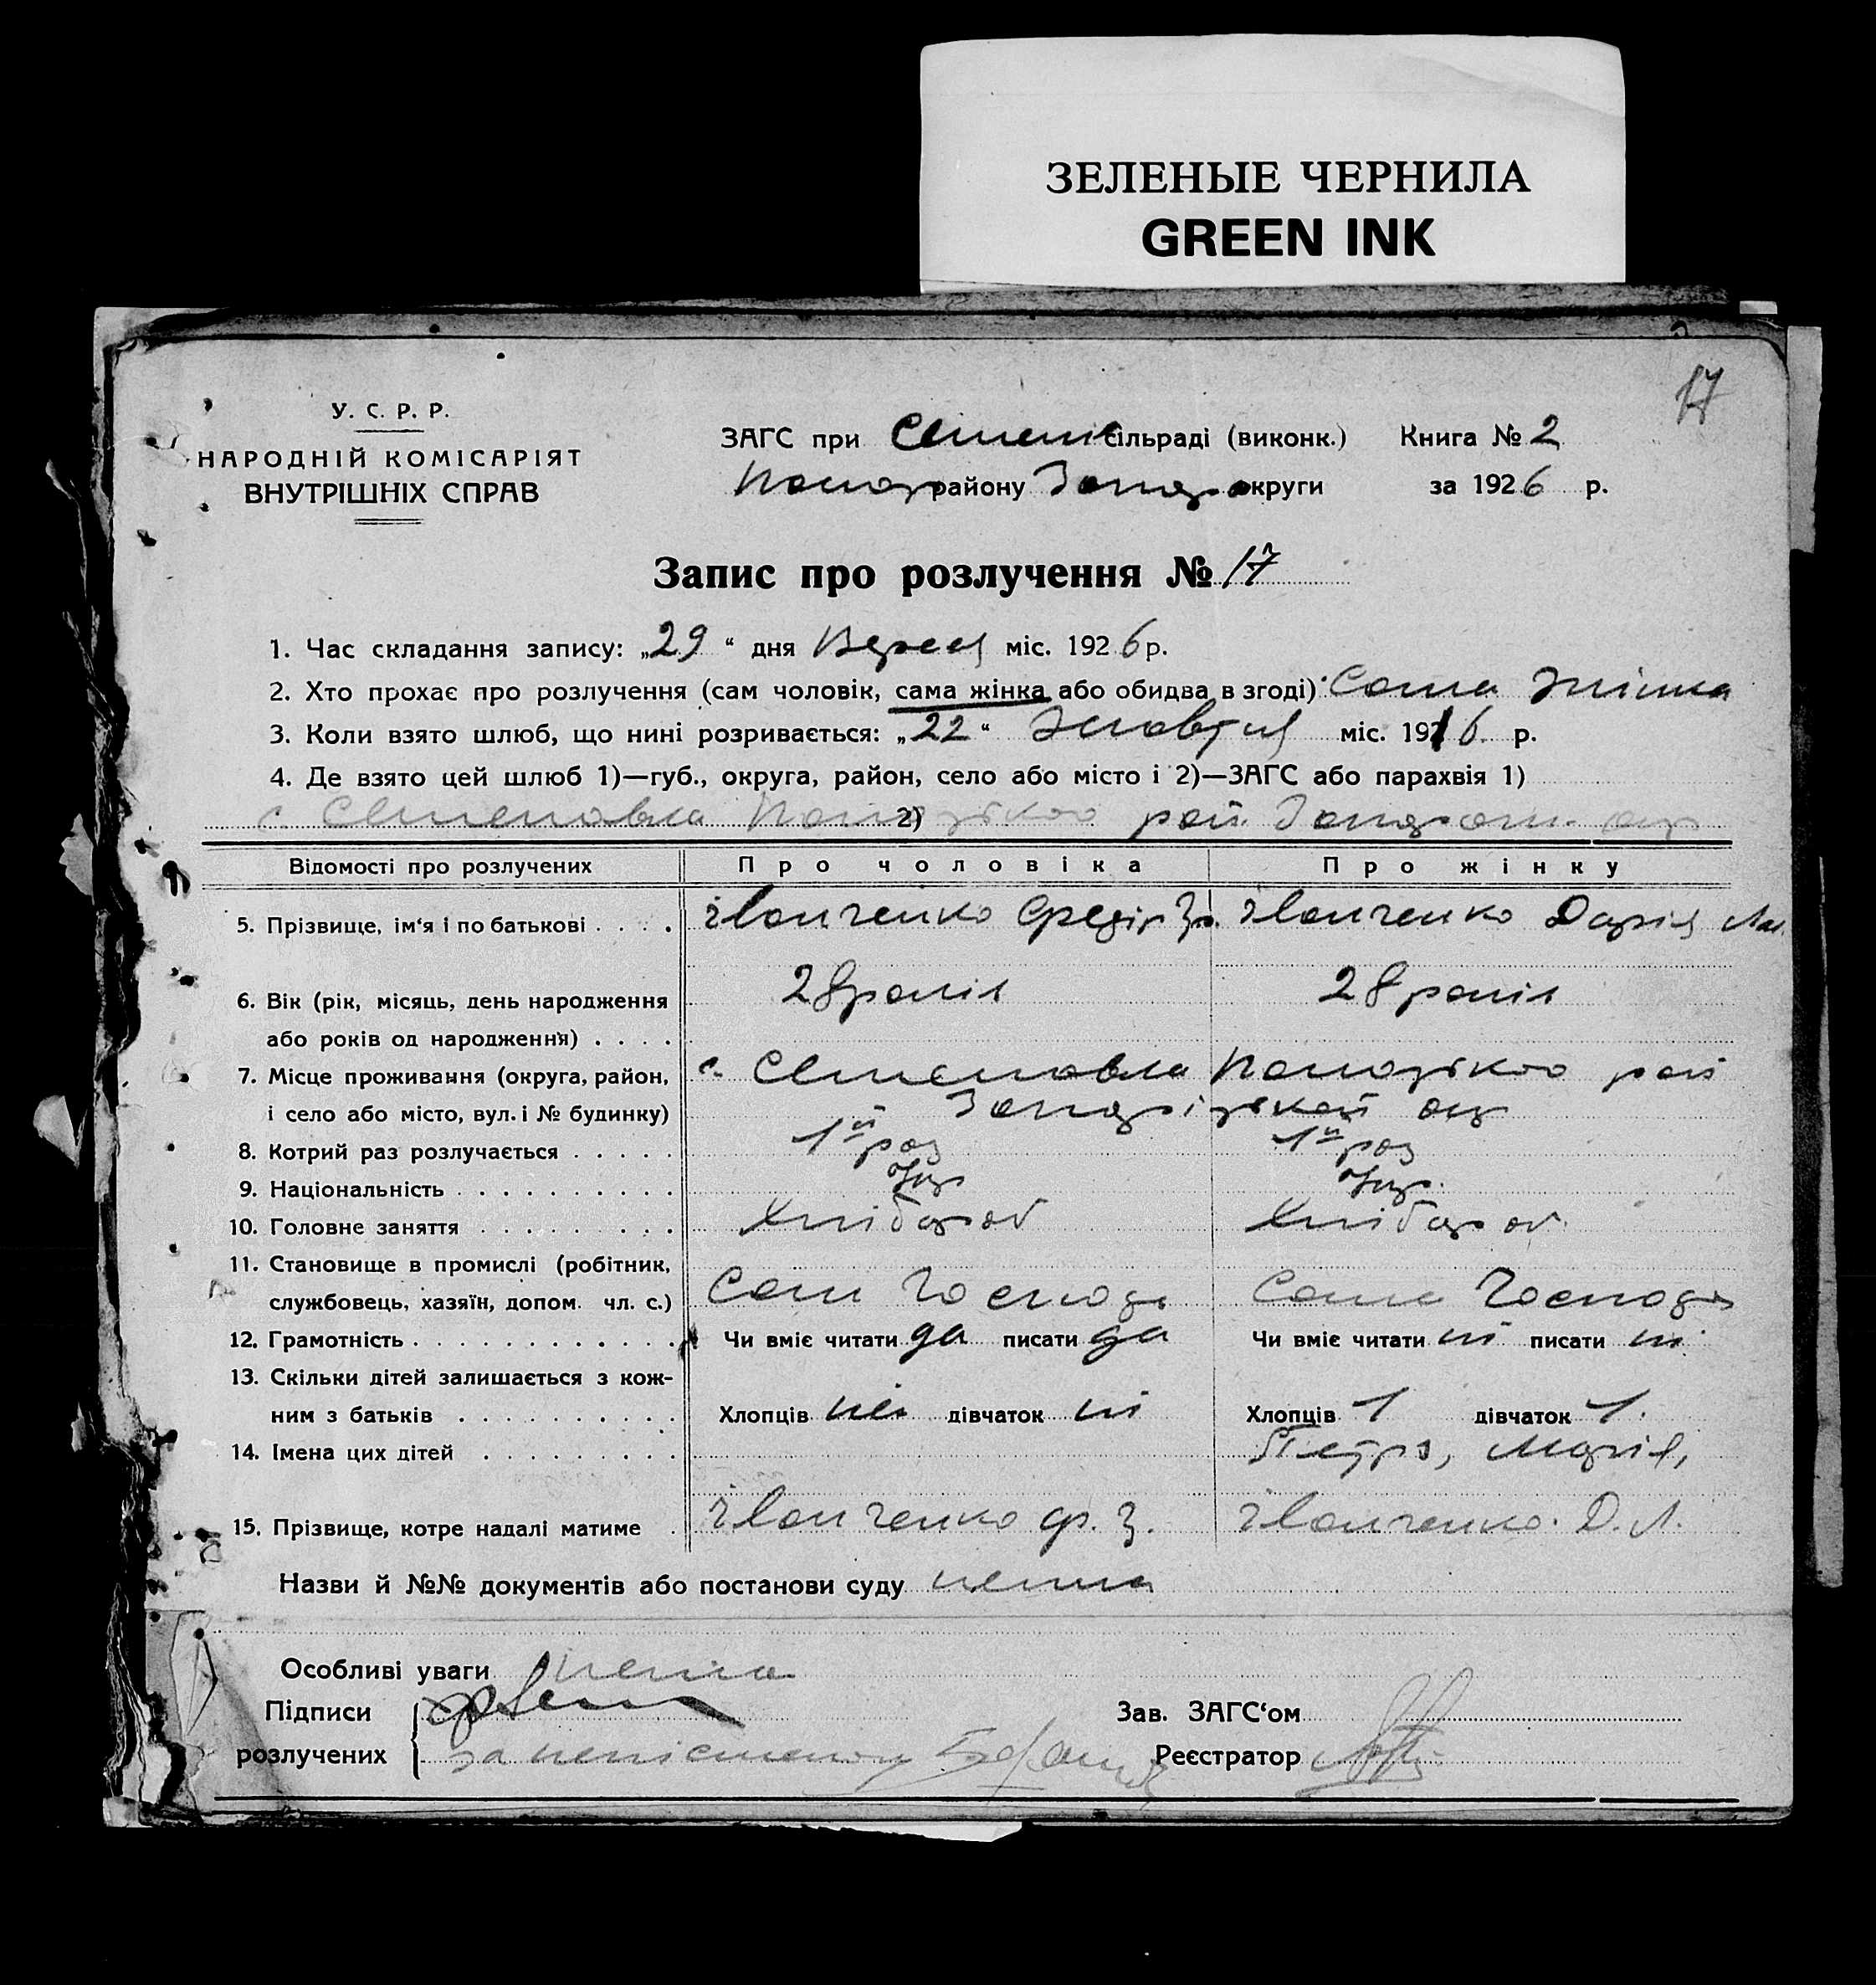 ЗЕЛЕНЫЕ ЧЕРНИЛА
GREEN INK
17
У. С. Р. Р.
НАРОДНІЙ КОМІСАРІЯТ
ВНУТРІШНІХ СПРАВ
ЗАГС при Семенів сільраді (виконк.) Книга № 2
району округи за 1926 р.
Запис про розлучення № 17
1. Час складання запису: „29“ дня Вересн міс. 1926 р.
2. Хто прохає про розлучення (сам чоловік, сама жінка або обидва в згоді) Сама жінка
3. Коли взято шлюб, що нині розривається: „22“ Жовтня міс. 1916 р.
4. Де взято цей шлюб 1)—губ., округа, район, село або місто і 2)—ЗАГС або парахвія 1)
с. Семеновка 2) рай.
Відомості про розлучених Про чоловіка Про жінку
5. Прізвище, ім‘я і по батькові . . . . Іванченко Федір Іванченко Дарія
6. Вік (рік, місяць, день народження 28 років 28 років
або років од народження) . . . .
7. Місце проживання (округа, район, с. Семеновка рай
і село або місто, вул. і № будинку) окр
8. Котрий раз розлучається . . . . . 1й раз 1й раз
9. Національність . . . . . . . . . . Укр Укр.
10. Головне заняття . . . . . . . . . Хлібороб Хлібороб
11. Становище в промислі (робітник,
службовець, хазяїн, допом. чл. с.) Сам Господ Сама Господ
12. Грамотність . . . . . . . . . . . . Чи вміє читати да писати да Чи вміє читати ні писати ні
13. Скільки дітей залишається з кож-
ним з батьків . . . . . . . . . . Хлопців ні дівчаток ні Хлопців 1 дівчаток 1.
14. Імена цих дітей . . . . . . . . . Петро, Марія,
15. Прізвище, котре надалі матиме . Іванченко Ф. З. Іванченко Д. Л.
Назви й №№ документів або постанови суду нема
Особливі уваги нема
Підписи
розлучених за неписьменну
Зав. ЗАГС‘ом
Реєстратор